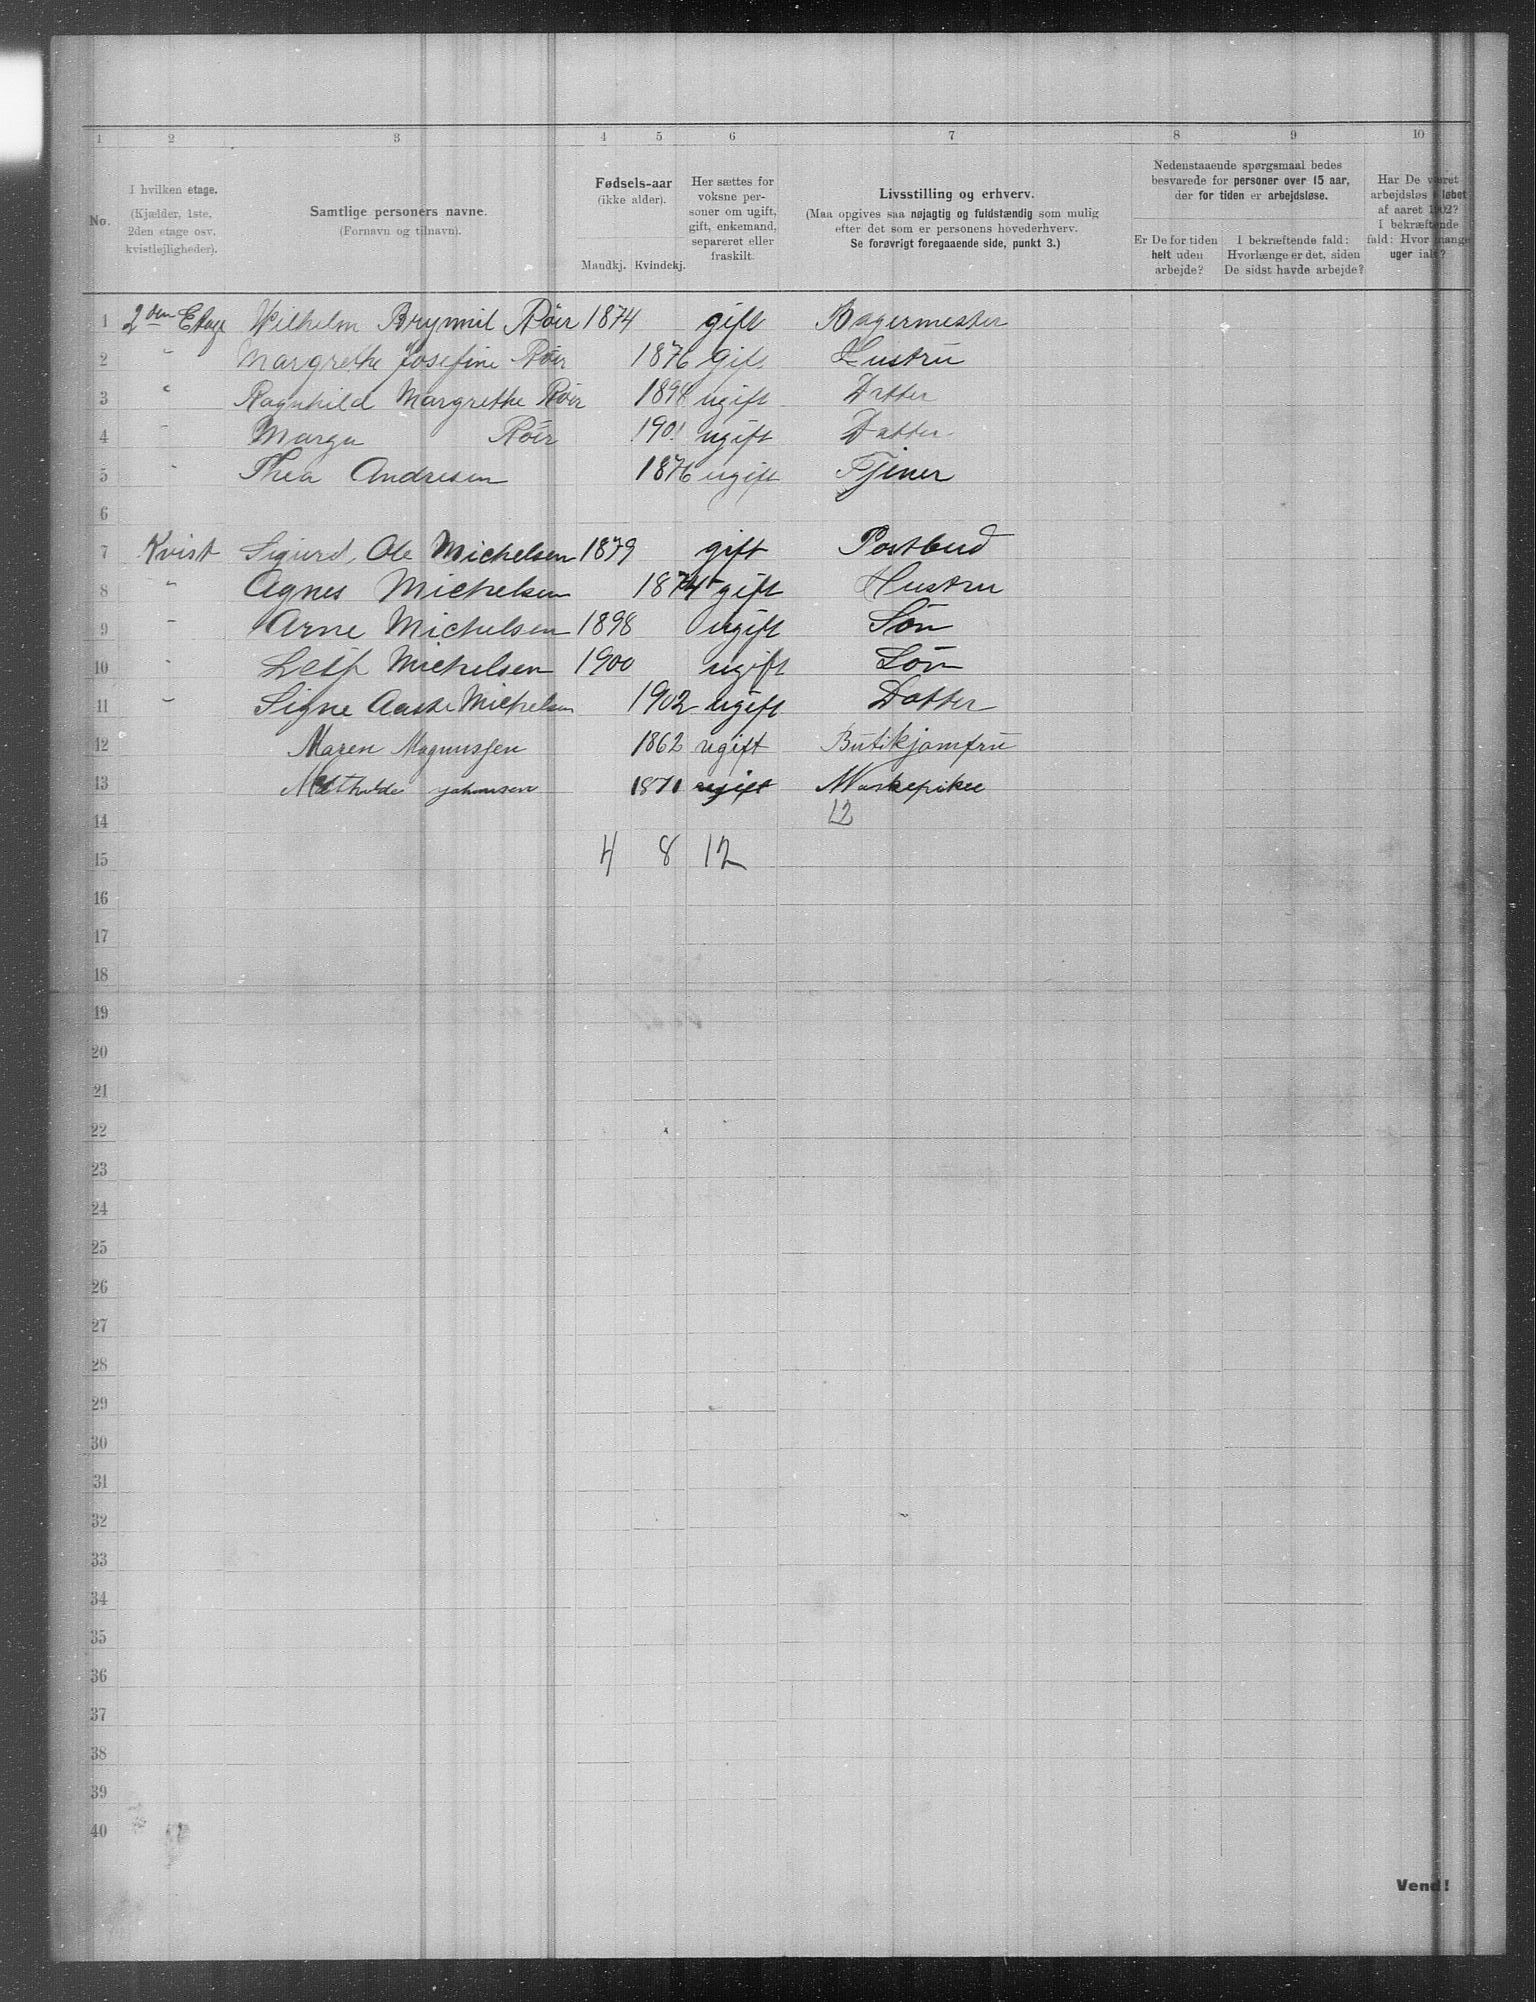 1 2 3 4 5 6 7 8 9 10
No.
I hvilken etage.
(Kjælder, 1ste,
2den etage osv.
kvistlejligheder).
Samtlige personers navne.
(Fornavn og tilnavn).
Fødsels-aar
(ikke alder).
Mandkj. Kvindekj.
Her sættes for
voksne per-
soner om ugift,
gift, enkemand,
separeret eller
fraskilt.
Livsstilling og erhverv.
(Maa opgives saa nøjagtig og fuldstændig som mulig
efter det som er personens hovederhverv.
Se forøvrigt foregaaende side, punkt 3.)
Nedenstaaende spørgsmaal bedes
besvarede for personer over 15 aar,
der for tiden er arbejdsløse.
Er De for tiden
helt uden
arbejde?
I bekræftende fald:
Hvorlænge er det, siden
De sidst havde arbejde?
Har De været
arbejdsløs i løbet
af aaret 1902?
I bekræftende
fald: Hvor mange
uger ialt?
1 2den Etage Wilhelm Brynnil Röer 1874 gift Bagermester
2 " Margrethe Josefine Röer 1876 gift Hustru
3 " Ragnhild Margrethe Röer 1898 ugift Datter
4 " Marga Röer 1901 ugift Datter
5 " Thea Andresen 1876 ugift Tjener
6
7 Kvist Sigurd, Ole Michelsen 1879 gift Postbud
8 " Agnes Michelsen 1874 gift Hustru
9 " Arne Michelsen 1898 ugift Sön
10 " Leif Michelsen 1900 ugift Sön
11 " Signe Aaste Michelsen 1902 ugift Datter
12 Maren Magnussen 1862 ugift Butikjomfru
13 Mathilde Johansen 1871 ugift Waskepike
14 12
15 4 8 12
16
17
18
19
20
21
22
23
24
25
26
27
28
29
30
31
32
33
34
35
36
37
38
39
40
Vend!